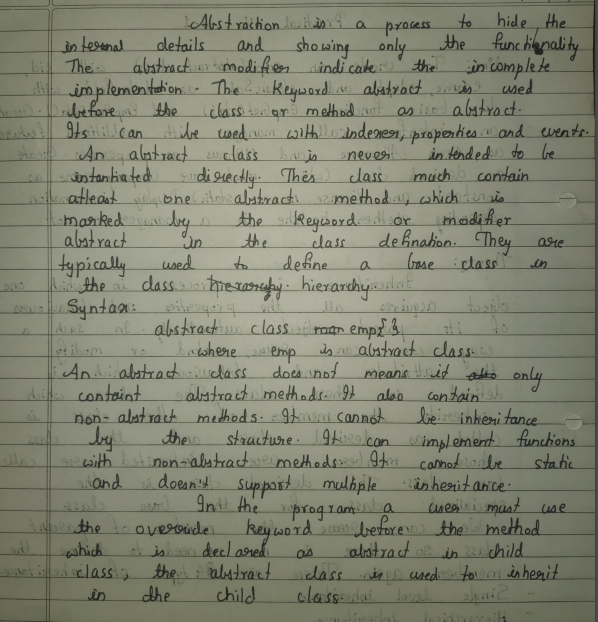 Abstraction is a process to hide the
internal details and showing only the functionality
The abstract modifier indicate the incomplete
implementation. The keyword abstract, is used
before the class or method as abstract.
Its can be used with indexer, properties and events.
An abstract class is never intended to be
intantiated directly. This class much contain
atleast one abstract method, which is
marked by the keyword or modifier
abstract in the class defination. They are
typically used to define a base class in
the class hierarchy.
Syntax:
abstract class emp{ }
where emp is abstract class.
An abstract class does not means it only
containt abstract methods. It also contain
non-abstract methods. It cannot be inheritance
by the structure. It can implement functions
with non-abstract methods. It cannot be static
and doesn't support multiple inheritance.
In the program a user must use
the override keyword before the method
which is declared as abstract in child
class, the abstract class is used to inherit
in the child class.